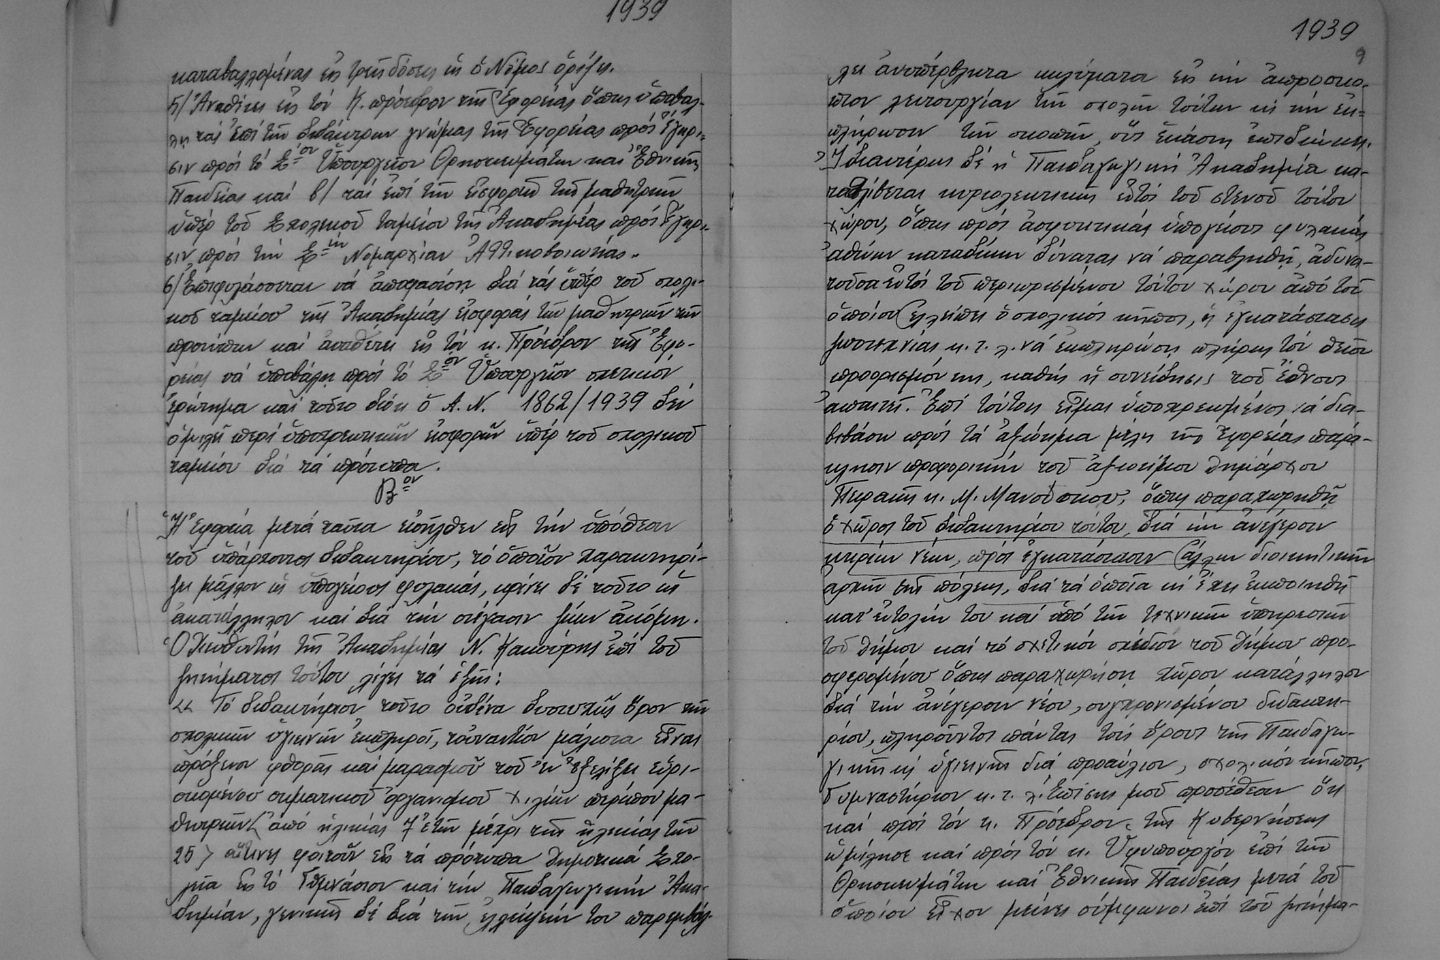 1939
καταβαλλομένας εἰς τρεῖς δόσεις ὡς ὁ Νόμος ὁρίζει.
5/ Ἀναθέτει εἰς τόν Κ. πρόεδρον τῆς Ἐφορείας ὅπως ὑποβάλ-
λῃ τάς ἐπί τῶν διδάκτρων γνώμας τῆς Ἐφορείας πρός ἔγκρι-
σιν πρός τό Σ<sup>όν</sup> Ὑπουργεῖον Θρησκευμάτων καί Ἐθνικῆς
Παιδείας καί β/ τάς ἐπί τῶν εἰσφορῶν τῶν μαθητριῶν
ὑπέρ τοῦ Σχολικοῦ ταμείου τῆς Ἀκαδημίας πρός ἔγκρι-
σιν πρός τήν Σ<sup>τήν</sup> Νομαρχίαν Ἀττικοβοιωτίας.
6/ Ἐπιφυλάσσεται νά ἀποφασίσῃ διά τάς ὑπέρ τοῦ σχολι-
κοῦ ταμείου τῆς Ἀκαδημίας εἰσφοράς τῶν μαθητριῶν τῶν
προτύπων καί ἀναθέτει εἰς τόν κ. Πρόεδρον τῆς Ἐφο-
ρείας νά ὑποβάλῃ πρός τό Σ<sup>όν</sup> Ὑπουργεῖον σχετικόν
ἐρώτημα καί τοῦτο διότι ὁ Α.Ν. 1862/1939 δέν
ὁμιλεῖ περί ὑποχρεωτικῶν εἰσφορῶν ὑπέρ τοῦ σχολικοῦ
ταμείου διά τά πρότυπα.
Β<sup>ον</sup>
Ἡ Ἐφορεία μετά ταῦτα εἰσῆλθεν εἰς τήν ὑπόθεσιν
τοῦ ὑπάρχοντος διδακτηρίου, τό ὁποῖον χαρακτηρί-
ζει μᾶλλον ὡς ὑπογείους φυλακάς, κρίνει δέ τοῦτο ὡς
ἀκατάλληλον καί διά τήν στέγασιν ζώων ἀκόμη.
Ὁ Διευθυντής τῆς Ἀκαδημίας Ν. Κακούρης ἐπί τοῦ
ζητήματος τούτου λέγει τά ἑξῆς:
<< Τό διδακτήριον τοῦτο οὐδένα δυστυχῶς ὅρον τῆς
σχολικῆς ὑγιεινῆς ἐκπληροῖ, τοὐναντίον μάλιστα εἶναι
πρόξενον φθορᾶς καί μαρασμοῦ τοῦ ἐν ἐξελίξει εὑρι-
σκομένου σωματικοῦ ὀργανισμοῦ χιλίων περίπου μα-
θητριῶν < ἀπό ἡλικίας 7 ἐτῶν μέχρι τῆς ἡλικίας τῶν
25 > αἵτινες φοιτοῦν εἰς τά πρότυπα Δημοτικά Σχο-
λεῖα εἰς τό Γυμνάσιον καί τήν Παιδαγωγικήν Ἀκα-
δημίαν, γενικῶς δέ διά τῶν ἐλλείψεών του παρεμβάλ-
1939
9
λει ἀνυπέρβλητα κωλύματα εἰς τήν ἀπρόσκο-
πτον λειτουργίαν τῶν σχολῶν τούτων ὡς τήν ἐκ-
πλήρωσιν τῶν σκοπῶν, οὕς ἑκάστη ἐπιδιώκει.
Ἰδιαιτέρως δέ ἡ Παιδαγωγική Ἀκαδημία κα-
ταθλίβεται κυριολεκτικῶς ἐντός τοῦ στενοῦ τούτου
χώρου, ὅστις πρός ἀσφυκτικάς ὑπογείους φυλακάς
ἀθώων καταδίκων δύναται νά παραβληθῇ, ἀδυνα-
τοῦσα ἐντός τοῦ περιωρισμένου τούτου χώρου ἀπό τοῦ
ὁποίου ἐλλείπει ὁ σχολικός κῆπος, αἱ ἐγκαταστάσεις
ζωοτεχνίας κ.τ.λ. νά ἐκπληρώσῃ πλήρως τόν θεῖον
προορισμόν της, καθώς ἡ συνείδησις τοῦ ἔθνους
ἀπαιτεῖ. Ἐπί τούτοις εἶμαι ὑποχρεωμένος νά δια-
βιβάσω πρός τά ἀξιότιμα μέλη τῆς Ἐφορείας παρά-
κλησιν προφορικήν τοῦ ἀξιοτίμου Δημάρχου
Πειραιῶς κ. Μ. Μανούσκου, ὅπως παραχωρηθῇ
ὁ χῶρος τοῦ διδακτηρίου τούτου, διά τήν ἀνέγερσιν
κτιρίων νέων, πρός ἐγκατάστασιν ἄλλων διοικητικῶν
ἀρχῶν τῆς πόλεως, διά τά ὁποῖα ὡς ἔχει ἐκπονηθῆ
κατ' ἐντολήν του καί ὑπό τῶν τεχνικῶν ὑπηρεσιῶν
τοῦ Δήμου καί τό σχετικόν σχέδιον τοῦ Δήμου προ-
σφερομένου ὅπως παραχωρήσῃ χῶρον κατάλληλον
διά τήν ἀνέγερσιν νέου, συγχρονισμένου διδακτη-
ρίου, πληροῦντος πάντας τούς ὅρους τῆς Παιδαγω-
γικῆς ὡς ὑγιεινῆς διά προαύλιον, σχολικόν κῆπον,
Γυμναστήριον κ.τ.λ. Ἐπίσης μοῦ προσέθεσεν ὅτι
καί πρός τόν κ. Πρόεδρον τῆς Κυβερνήσεως
ὡμίλησε καί πρός τόν κ. Ὑφυπουργόν ἐπί τῶν
Θρησκευμάτων καί Ἐθνικῆς Παιδείας μετά τοῦ
ὁποίου εἶχον μείνει σύμφωνοι ἐπί τοῦ ζητήμα-